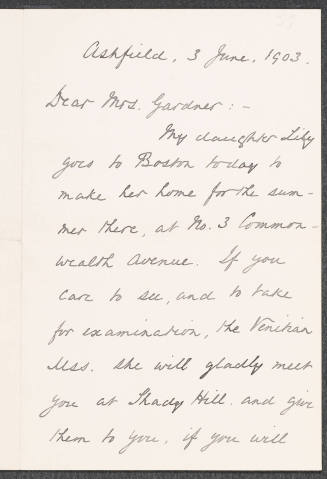 Ashfield, 3 June, 1903.
Dear Mrs. Gardner : -
My daughter Lily
goes to Boston today to
make her home for the sum-
mer there, at No. 3 Common-
wealth Avenue. If you
care to see, and to take
for examination, the Venitian
Mss. she will gladly meet
you at Shady Hill. and give
them to you, if you will